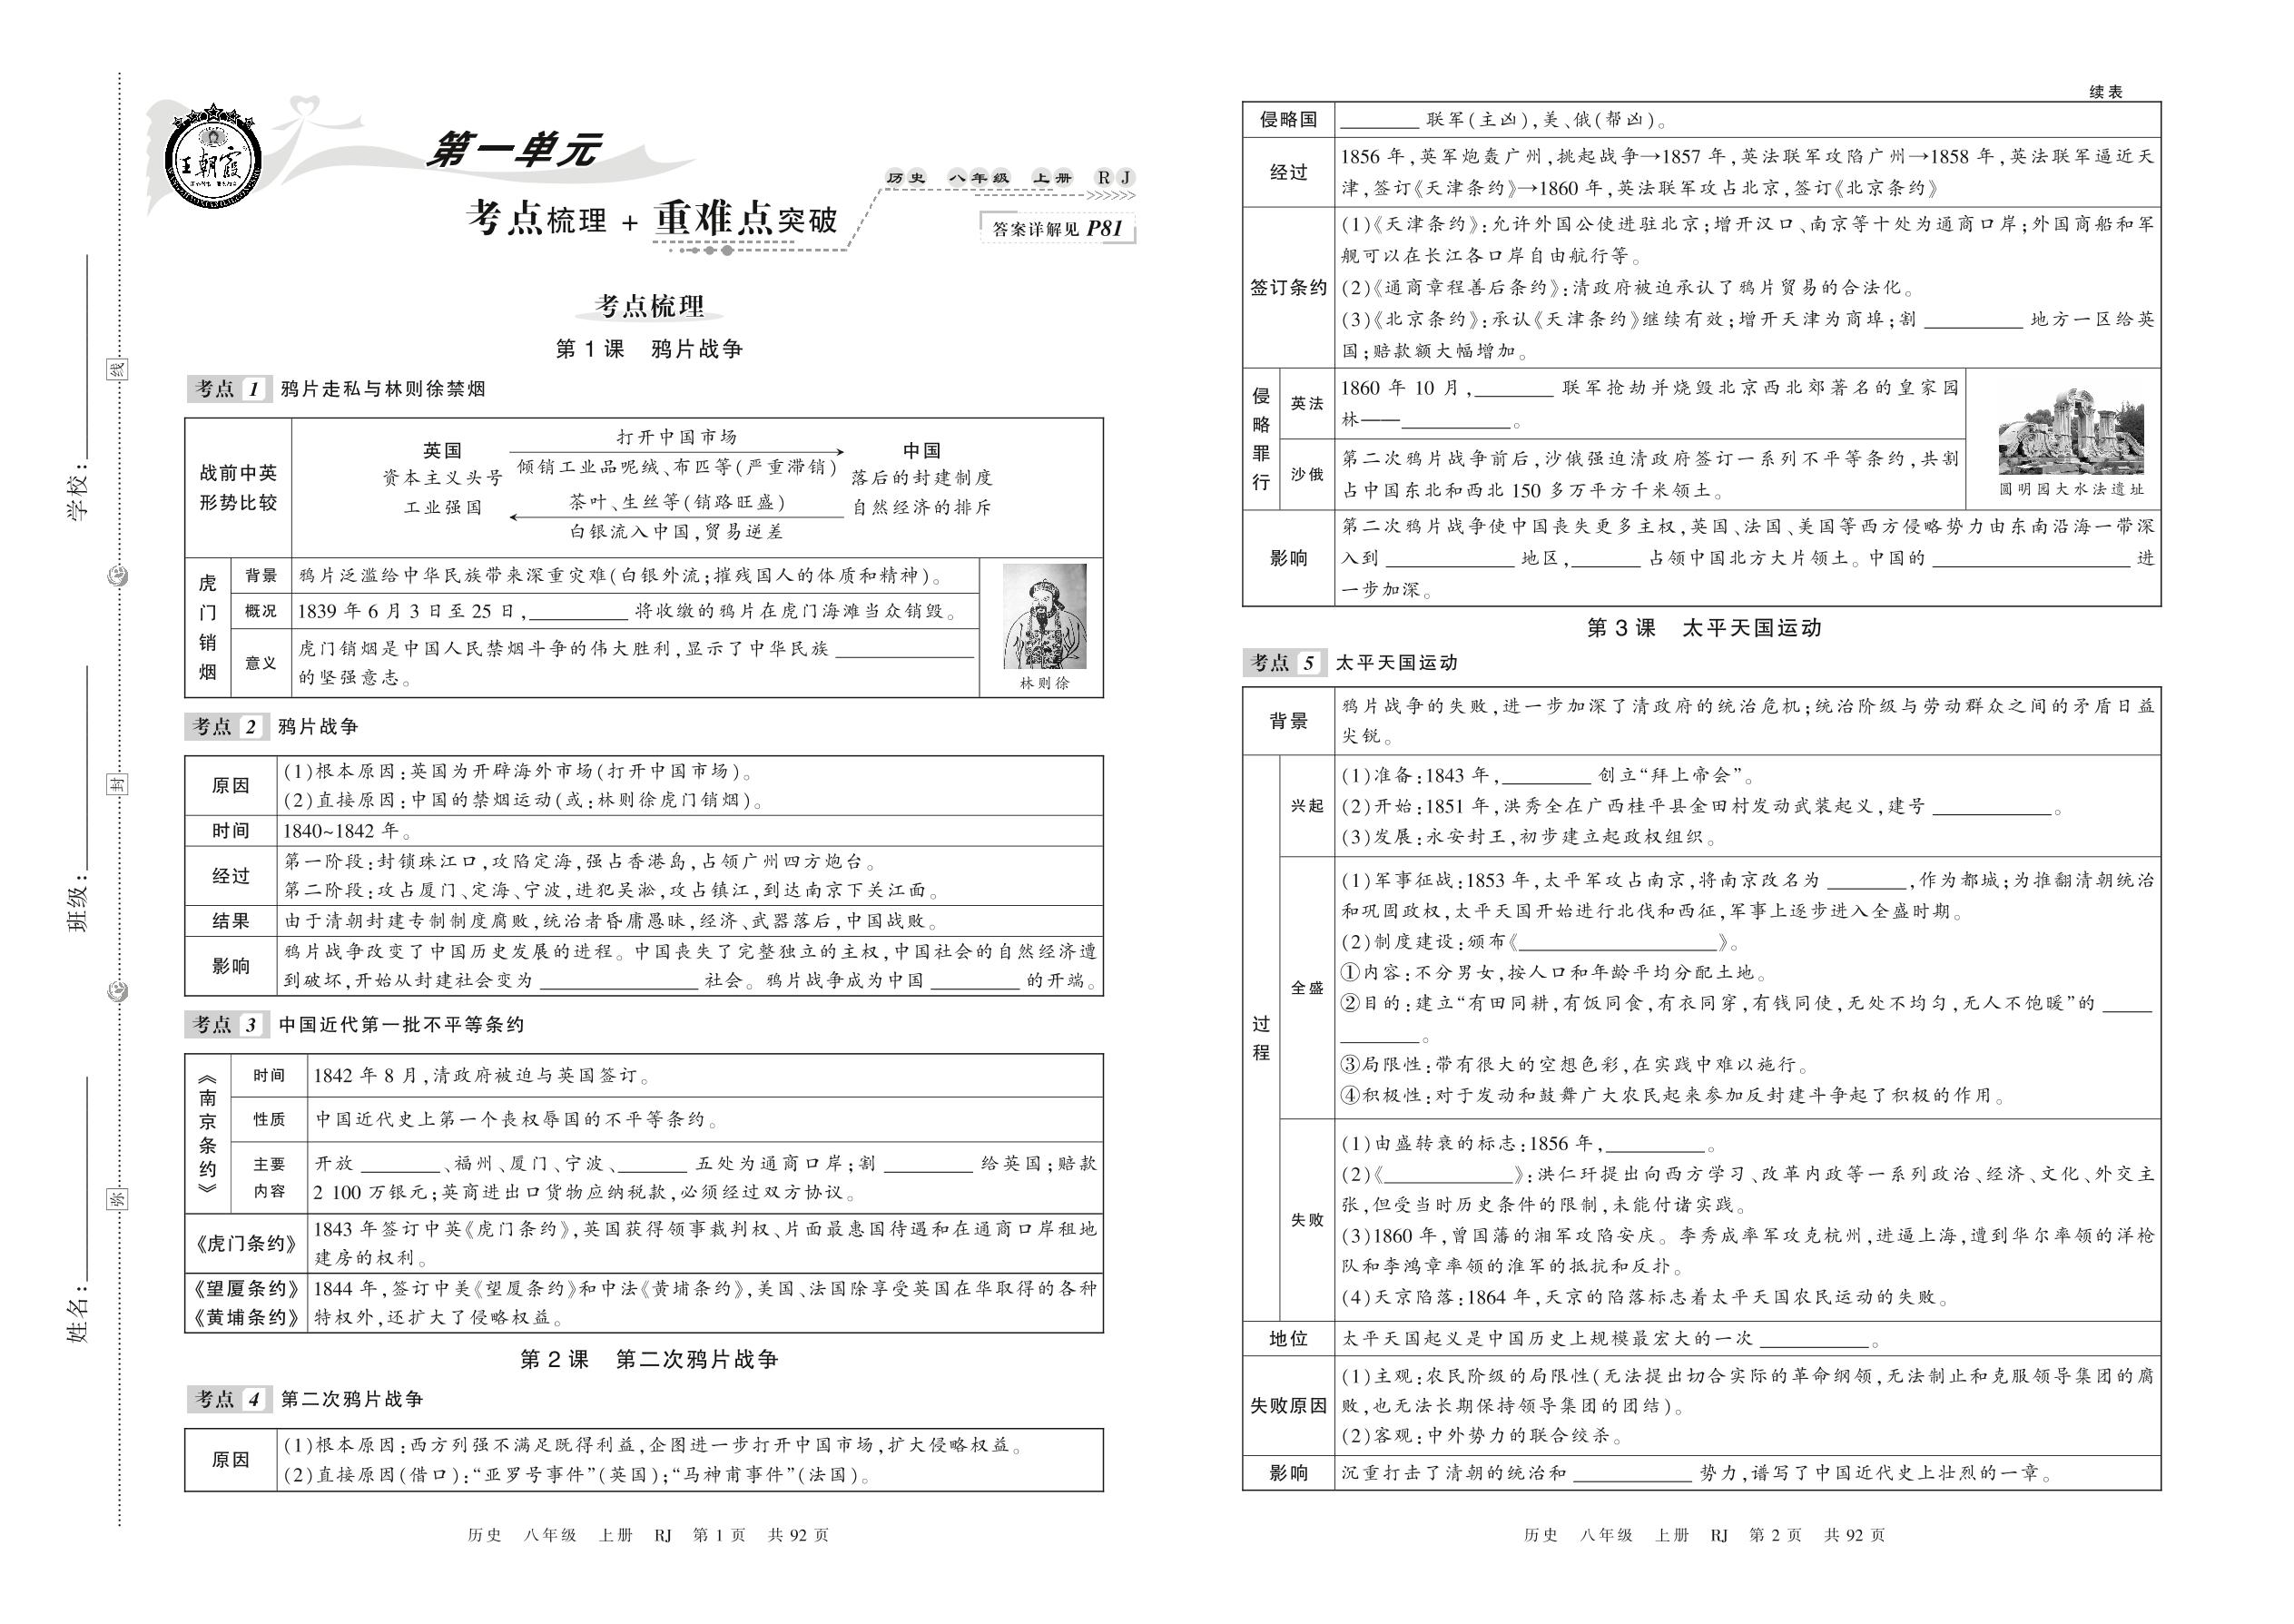 学校：
班级：
姓名：
线
封
弥
王朝霞
第一单元
历史 八年级 上册 RJ
考点梳理 + 重难点突破
答案详解见 P81
考点梳理
第 1 课 鸦片战争
考点 1 鸦片走私与林则徐禁烟
战前中英
形势比较
英国
资本主义头号
工业强国
打开中国市场
倾销工业品呢绒、布匹等(严重滞销)
茶叶、生丝等(销路旺盛)
白银流入中国,贸易逆差
中国
落后的封建制度
自然经济的排斥
虎门销烟
背景 鸦片泛滥给中华民族带来深重灾难(白银外流;摧残国人的体质和精神)。
概况 1839 年 6 月 3 日至 25 日,________ 将收缴的鸦片在虎门海滩当众销毁。
意义 虎门销烟是中国人民禁烟斗争的伟大胜利,显示了中华民族 ________
的坚强意志。
林则徐
考点 2 鸦片战争
原因 (1)根本原因:英国为开辟海外市场(打开中国市场)。
(2)直接原因:中国的禁烟运动(或:林则徐虎门销烟)。
时间 1840~1842 年。
经过 第一阶段:封锁珠江口,攻陷定海,强占香港岛,占领广州四方炮台。
第二阶段:攻占厦门、定海、宁波,进犯吴淞,攻占镇江,到达南京下关江面。
结果 由于清朝封建专制制度腐败,统治者昏庸愚昧,经济、武器落后,中国战败。
影响 鸦片战争改变了中国历史发展的进程。中国丧失了完整独立的主权,中国社会的自然经济遭
到破坏,开始从封建社会变为 ________ 社会。鸦片战争成为中国 ________ 的开端。
考点 3 中国近代第一批不平等条约
《南京条约》
时间 1842 年 8 月,清政府被迫与英国签订。
性质 中国近代史上第一个丧权辱国的不平等条约。
主要内容 开放 ________、福州、厦门、宁波、________ 五处为通商口岸;割 ________ 给英国;赔款
2 100 万银元;英商进出口货物应纳税款,必须经过双方协议。
《虎门条约》 1843 年签订中英《虎门条约》,英国获得领事裁判权、片面最惠国待遇和在通商口岸租地
建房的权利。
《望厦条约》 1844 年,签订中美《望厦条约》和中法《黄埔条约》,美国、法国除享受英国在华取得的各种
《黄埔条约》 特权外,还扩大了侵略权益。
第 2 课 第二次鸦片战争
考点 4 第二次鸦片战争
原因 (1)根本原因:西方列强不满足既得利益,企图进一步打开中国市场,扩大侵略权益。
(2)直接原因(借口):“亚罗号事件”(英国);“马神甫事件”(法国)。
历史 八年级 上册 RJ 第 1 页 共 92 页
续表
侵略国 ________ 联军(主凶),美、俄(帮凶)。
经过 1856 年,英军炮轰广州,挑起战争→1857 年,英法联军攻陷广州→1858 年,英法联军逼近天
津,签订《天津条约》→1860 年,英法联军攻占北京,签订《北京条约》
签订条约 (1)《天津条约》:允许外国公使进驻北京;增开汉口、南京等十处为通商口岸;外国商船和军
舰可以在长江各口岸自由航行等。
(2)《通商章程善后条约》:清政府被迫承认了鸦片贸易的合法化。
(3)《北京条约》:承认《天津条约》继续有效;增开天津为商埠;割 ________ 地方一区给英
国;赔款额大幅增加。
侵略罪行
英法 1860 年 10 月,________ 联军抢劫并烧毁北京西北郊著名的皇家园
林——________。
沙俄 第二次鸦片战争前后,沙俄强迫清政府签订一系列不平等条约,共割
占中国东北和西北 150 多万平方千米领土。
圆明园大水法遗址
影响 第二次鸦片战争使中国丧失更多主权,英国、法国、美国等西方侵略势力由东南沿海一带深
入到 ________ 地区,________ 占领中国北方大片领土。中国的 ________ 进
一步加深。
第 3 课 太平天国运动
考点 5 太平天国运动
背景 鸦片战争的失败,进一步加深了清政府的统治危机;统治阶级与劳动群众之间的矛盾日益
尖锐。
过程
兴起 (1)准备:1843 年,________ 创立“拜上帝会”。
(2)开始:1851 年,洪秀全在广西桂平县金田村发动武装起义,建号 ________。
(3)发展:永安封王,初步建立起政权组织。
全盛 (1)军事征战:1853 年,太平军攻占南京,将南京改名为 ________,作为都城;为推翻清朝统治
和巩固政权,太平天国开始进行北伐和西征,军事上逐步进入全盛时期。
(2)制度建设:颁布《________》。
①内容:不分男女,按人口和年龄平均分配土地。
②目的:建立“有田同耕,有饭同食,有衣同穿,有钱同使,无处不均匀,无人不饱暖”的 ____
________。
③局限性:带有很大的空想色彩,在实践中难以施行。
④积极性:对于发动和鼓舞广大农民起来参加反封建斗争起了积极的作用。
失败 (1)由盛转衰的标志:1856 年,________。
(2)《________》:洪仁玕提出向西方学习、改革内政等一系列政治、经济、文化、外交主
张,但受当时历史条件的限制,未能付诸实践。
(3)1860 年,曾国藩的湘军攻陷安庆。李秀成率军攻克杭州,进逼上海,遭到华尔率领的洋枪
队和李鸿章率领的淮军的抵抗和反扑。
(4)天京陷落:1864 年,天京的陷落标志着太平天国农民运动的失败。
地位 太平天国起义是中国历史上规模最宏大的一次 ________。
失败原因 (1)主观:农民阶级的局限性(无法提出切合实际的革命纲领,无法制止和克服领导集团的腐
败,也无法长期保持领导集团的团结)。
(2)客观:中外势力的联合绞杀。
影响 沉重打击了清朝的统治和 ________ 势力,谱写了中国近代史上壮烈的一章。
历史 八年级 上册 RJ 第 2 页 共 92 页